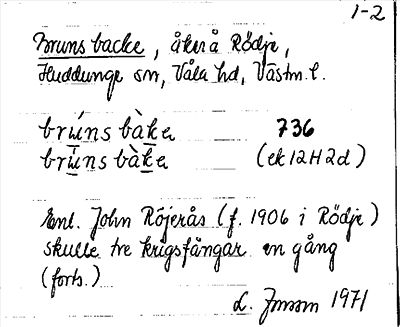 1-2
Bruns backe, åker å Rödje,
Huddunge sn, Våla hd, Västm. l.
brúns bàka 736
brúns bàka (ek 12H2d)
Enl. John Röjerås (f. 1906 i Rödje)
skulle tre krigsfångar en gång
(forts.)
L. Jonson 1971